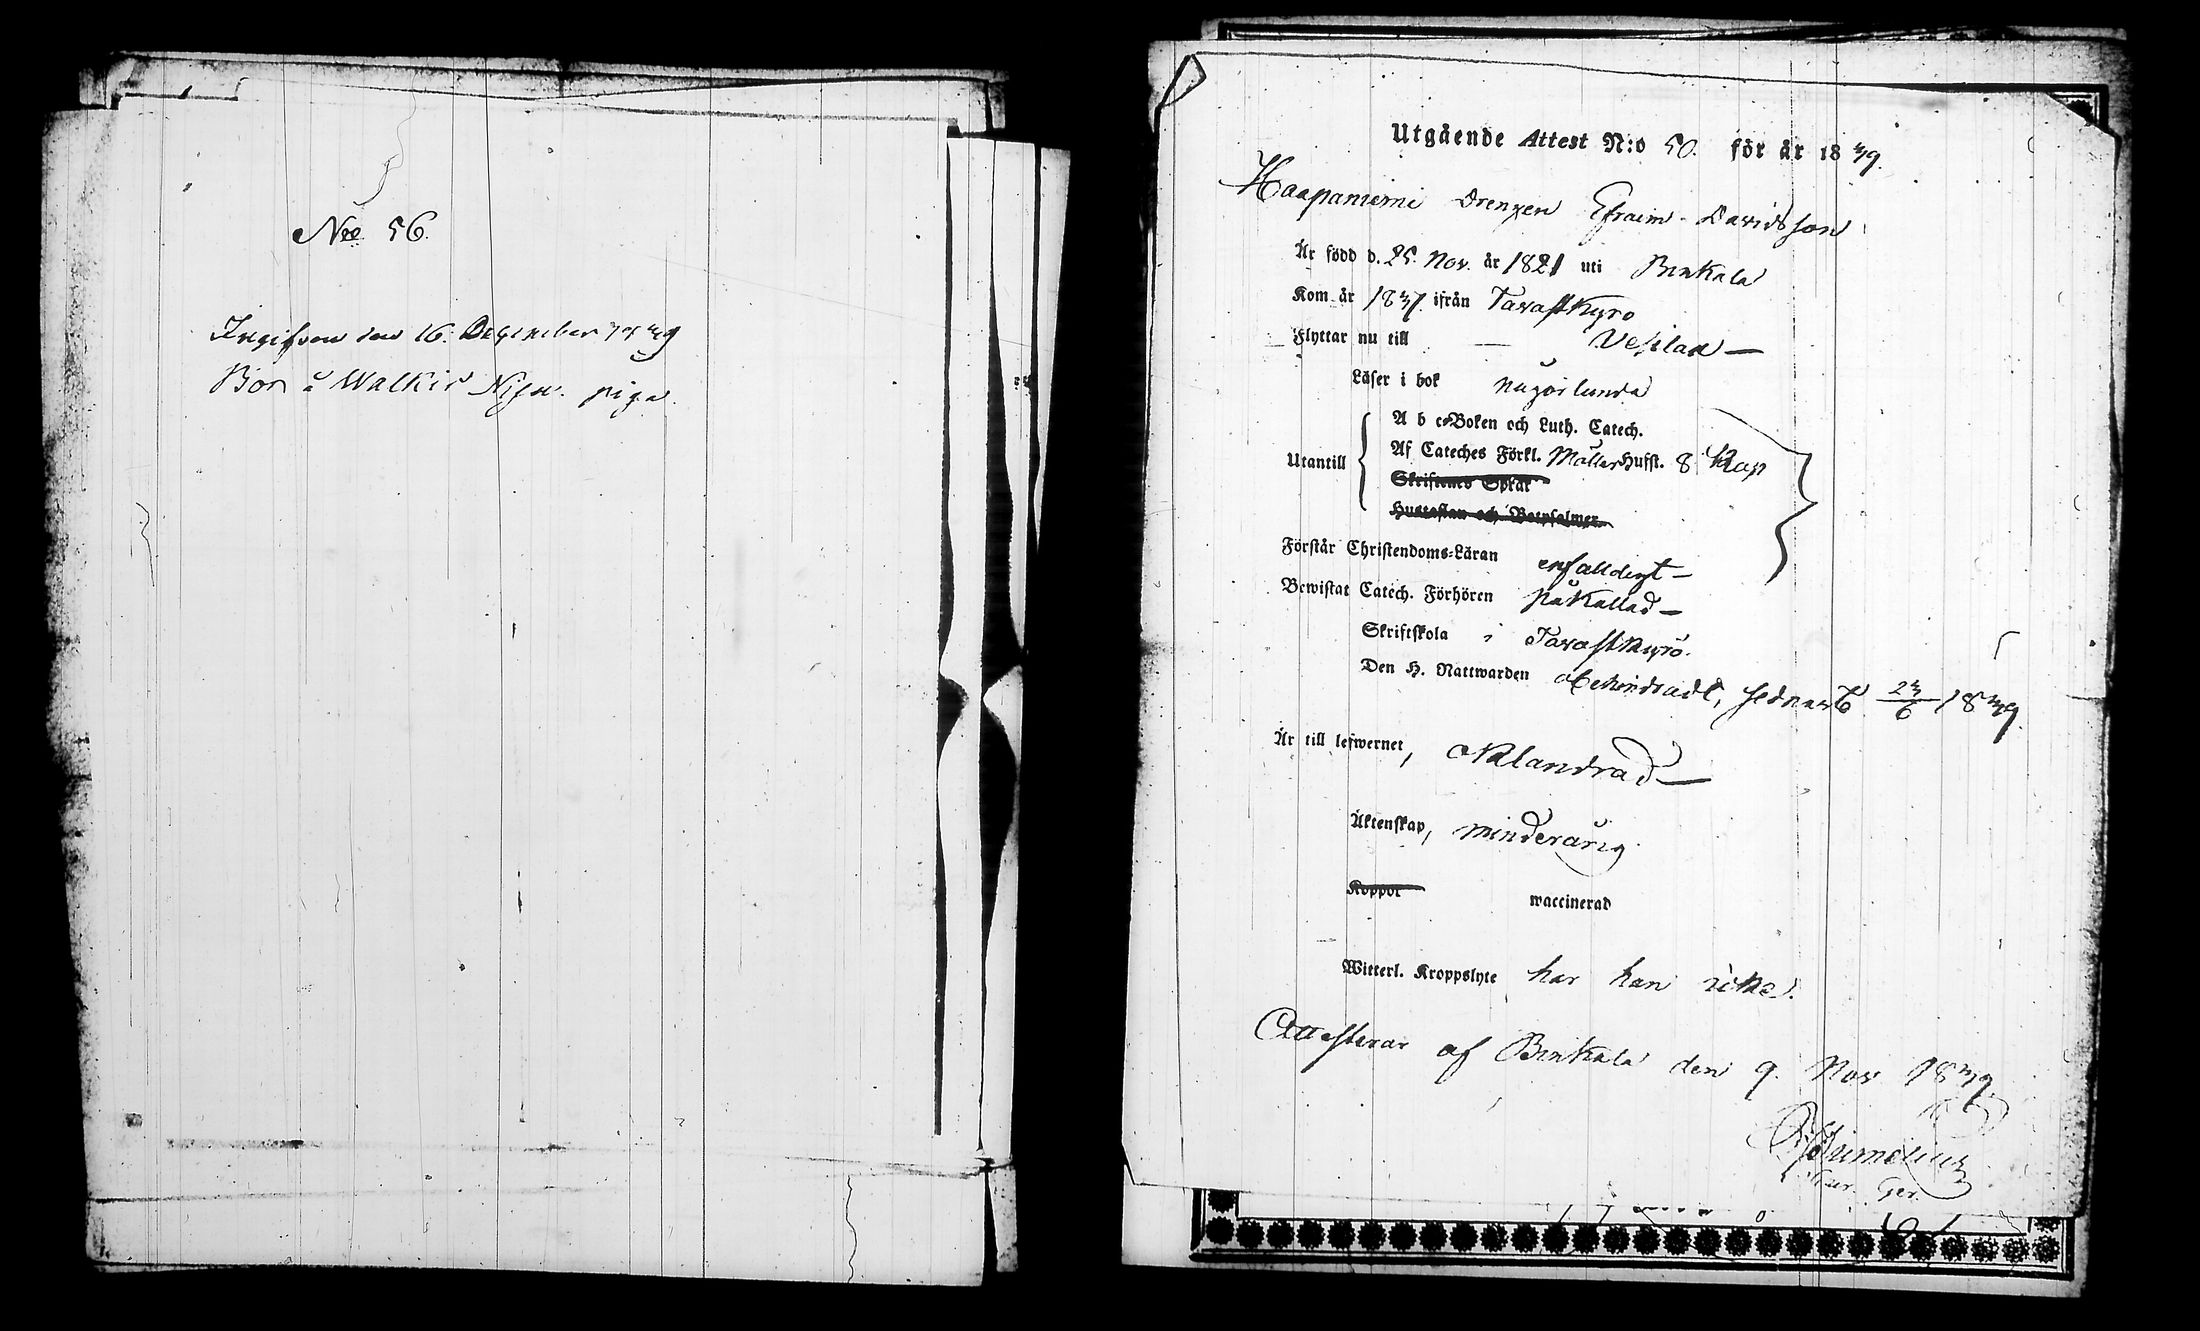 No 56.
Ingifven den 16. December 1839
Bor å Walkis Niju. piga.
Utgående Attest N:o 50. för år 1839.
Haapaniemi Drengen Efraim Davidsson
Är född d. 25. Nov. år 1821 uti Birkala
Kom år 1837 ifrån Tavastkyro
Flyttar nu till — Vesilax —
Läser i bok någorlunda
A b c-Boken och Luth. Catech.
Utantill Af Cateches Förkl. Möllers Hufst. 8 Kap
Skriftenes Språk
Hustaflan och Botpsalmer
Förstår Christendoms-Läran enfalldigt —
Bewistat Catech. Förhören påkallad —
Skriftskola i Tavastkyrö.
Den H. Nattwarden obehindradt, sednast 23/6 1839.
Är till lefwernet, oklandrad —
Äktenskap, minderårig.
Koppor waccinerad
Witterl. Kroppslyte har han icke.
Attesterar af Birkala den 9. Nov 1839.